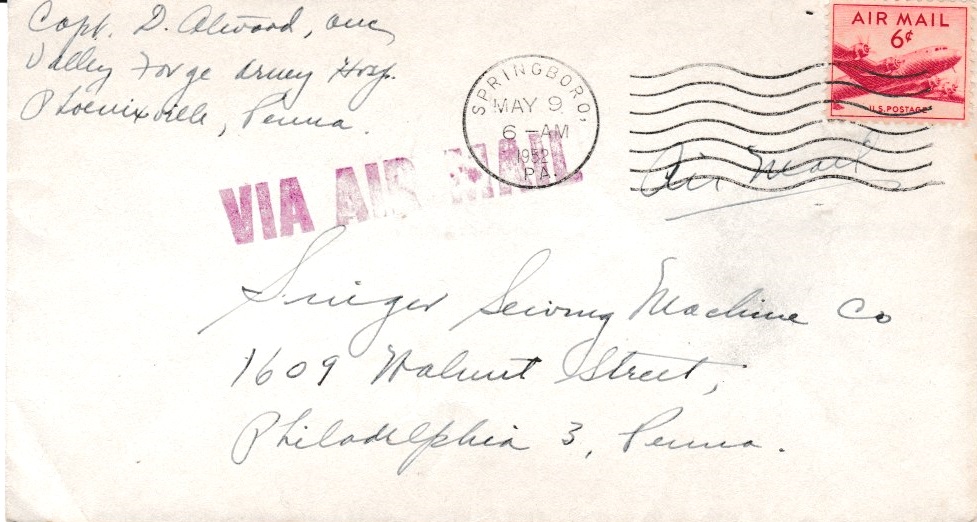 Capt. D. Atwood, anc
Valley Forge Army Hosp.
Phoenixville, Penna.
SPRINGBORO,
MAY 9
6-AM
1952
PA.
AIR MAIL
6¢
U.S. POSTAGE
Air Mail
VIA AIR MAIL
Singer Sewing Machine Co
1609 Walnut Street,
Philadelphia 3, Penna.